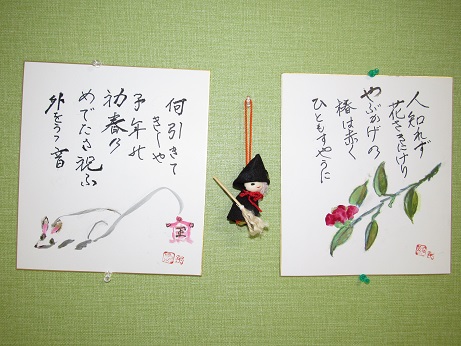 人知れず
花さきにけり
やぶかげの
椿は赤く
ひともすやうに
何引きて
きしや
子年の
初春の
めでたさ祝ふ
外をうつ音
正